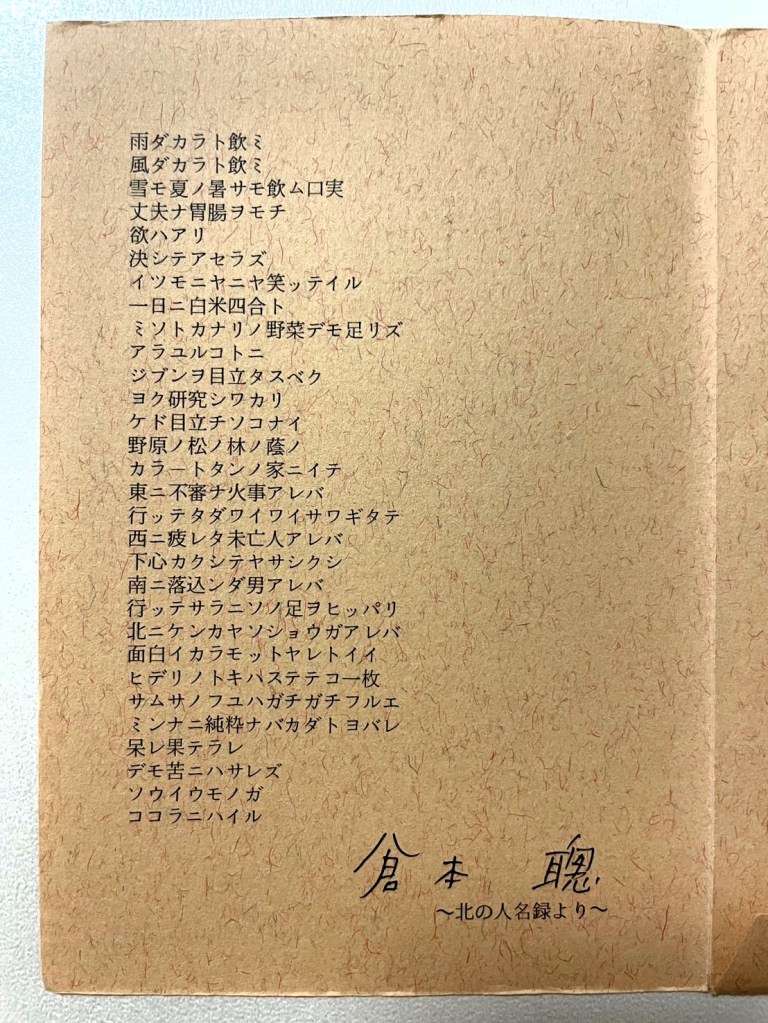 雨ダカラト飲ミ
風ダカラト飲ミ
雪モ夏ノ暑サモ飲ム口実
丈夫ナ胃腸ヲモチ
欲ハアリ
決シテアセラズ
イツモニヤニヤ笑ッテイル
一日ニ白米四合ト
ミソトカナリノ野菜デモ足リズ
アラユルコトニ
ジブンヲ目立タスベク
ヨク研究シワカリ
ケド目立チソコナイ
野原ノ松ノ林ノ蔭ノ
カラートタンノ家ニイテ
東ニ不審ナ火事アレバ
行ッテタダワイワイサワギタテ
西ニ疲レタ未亡人アレバ
下心カクシテヤサシクシ
南ニ落込ンダ男アレバ
行ッテサラニソノ足ヲヒッパリ
北ニケンカヤソショウガアレバ
面白イカラモットヤレトイイ
ヒデリノトキハステテコ一枚
サムサノフユハガチガチフルエ
ミンナニ純粋ナバカダトヨバレ
呆レ果テラレ
デモ苦ニハサレズ
ソウイウモノガ
ココラニハイル
倉本 聰
〜北の人名録より〜